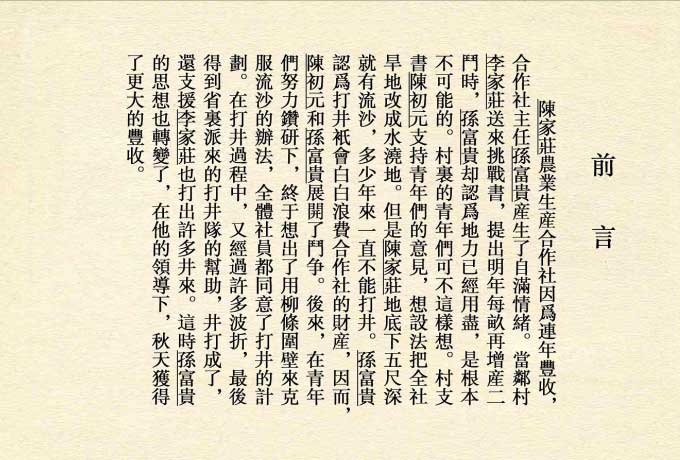 前言
陳家莊農業生産合作社因爲連年豐收，
合作社主任孫富貴産生了自滿情緒。當鄰村
李家莊送來挑戰書，提出明年每畝再增産二
鬥時，孫富貴却認爲地力已經用盡，是根本
不可能的。村裏的青年們可不這樣想。村支
書陳初元支持青年們的意見，想設法把全社
旱地改成水澆地。但是陳家莊地底下五尺深
就有流沙，多少年來一直不能打井。孫富貴
認爲打井衹會白白浪費合作社的財産，因而，
陳初元和孫富貴展開了鬥争。後來，在青年
們努力鑽研下，終于想出了用柳條圍壁來克
服流沙的辦法，全體社員都同意了打井的計
劃。在打井過程中，又經過許多波折，最後
得到省裏派來的打井隊的幫助，井打成了，
還支援李家莊也打出許多井來。這時孫富貴
的思想也轉變了，在他的領導下，秋天獲得
了更大的豐收。